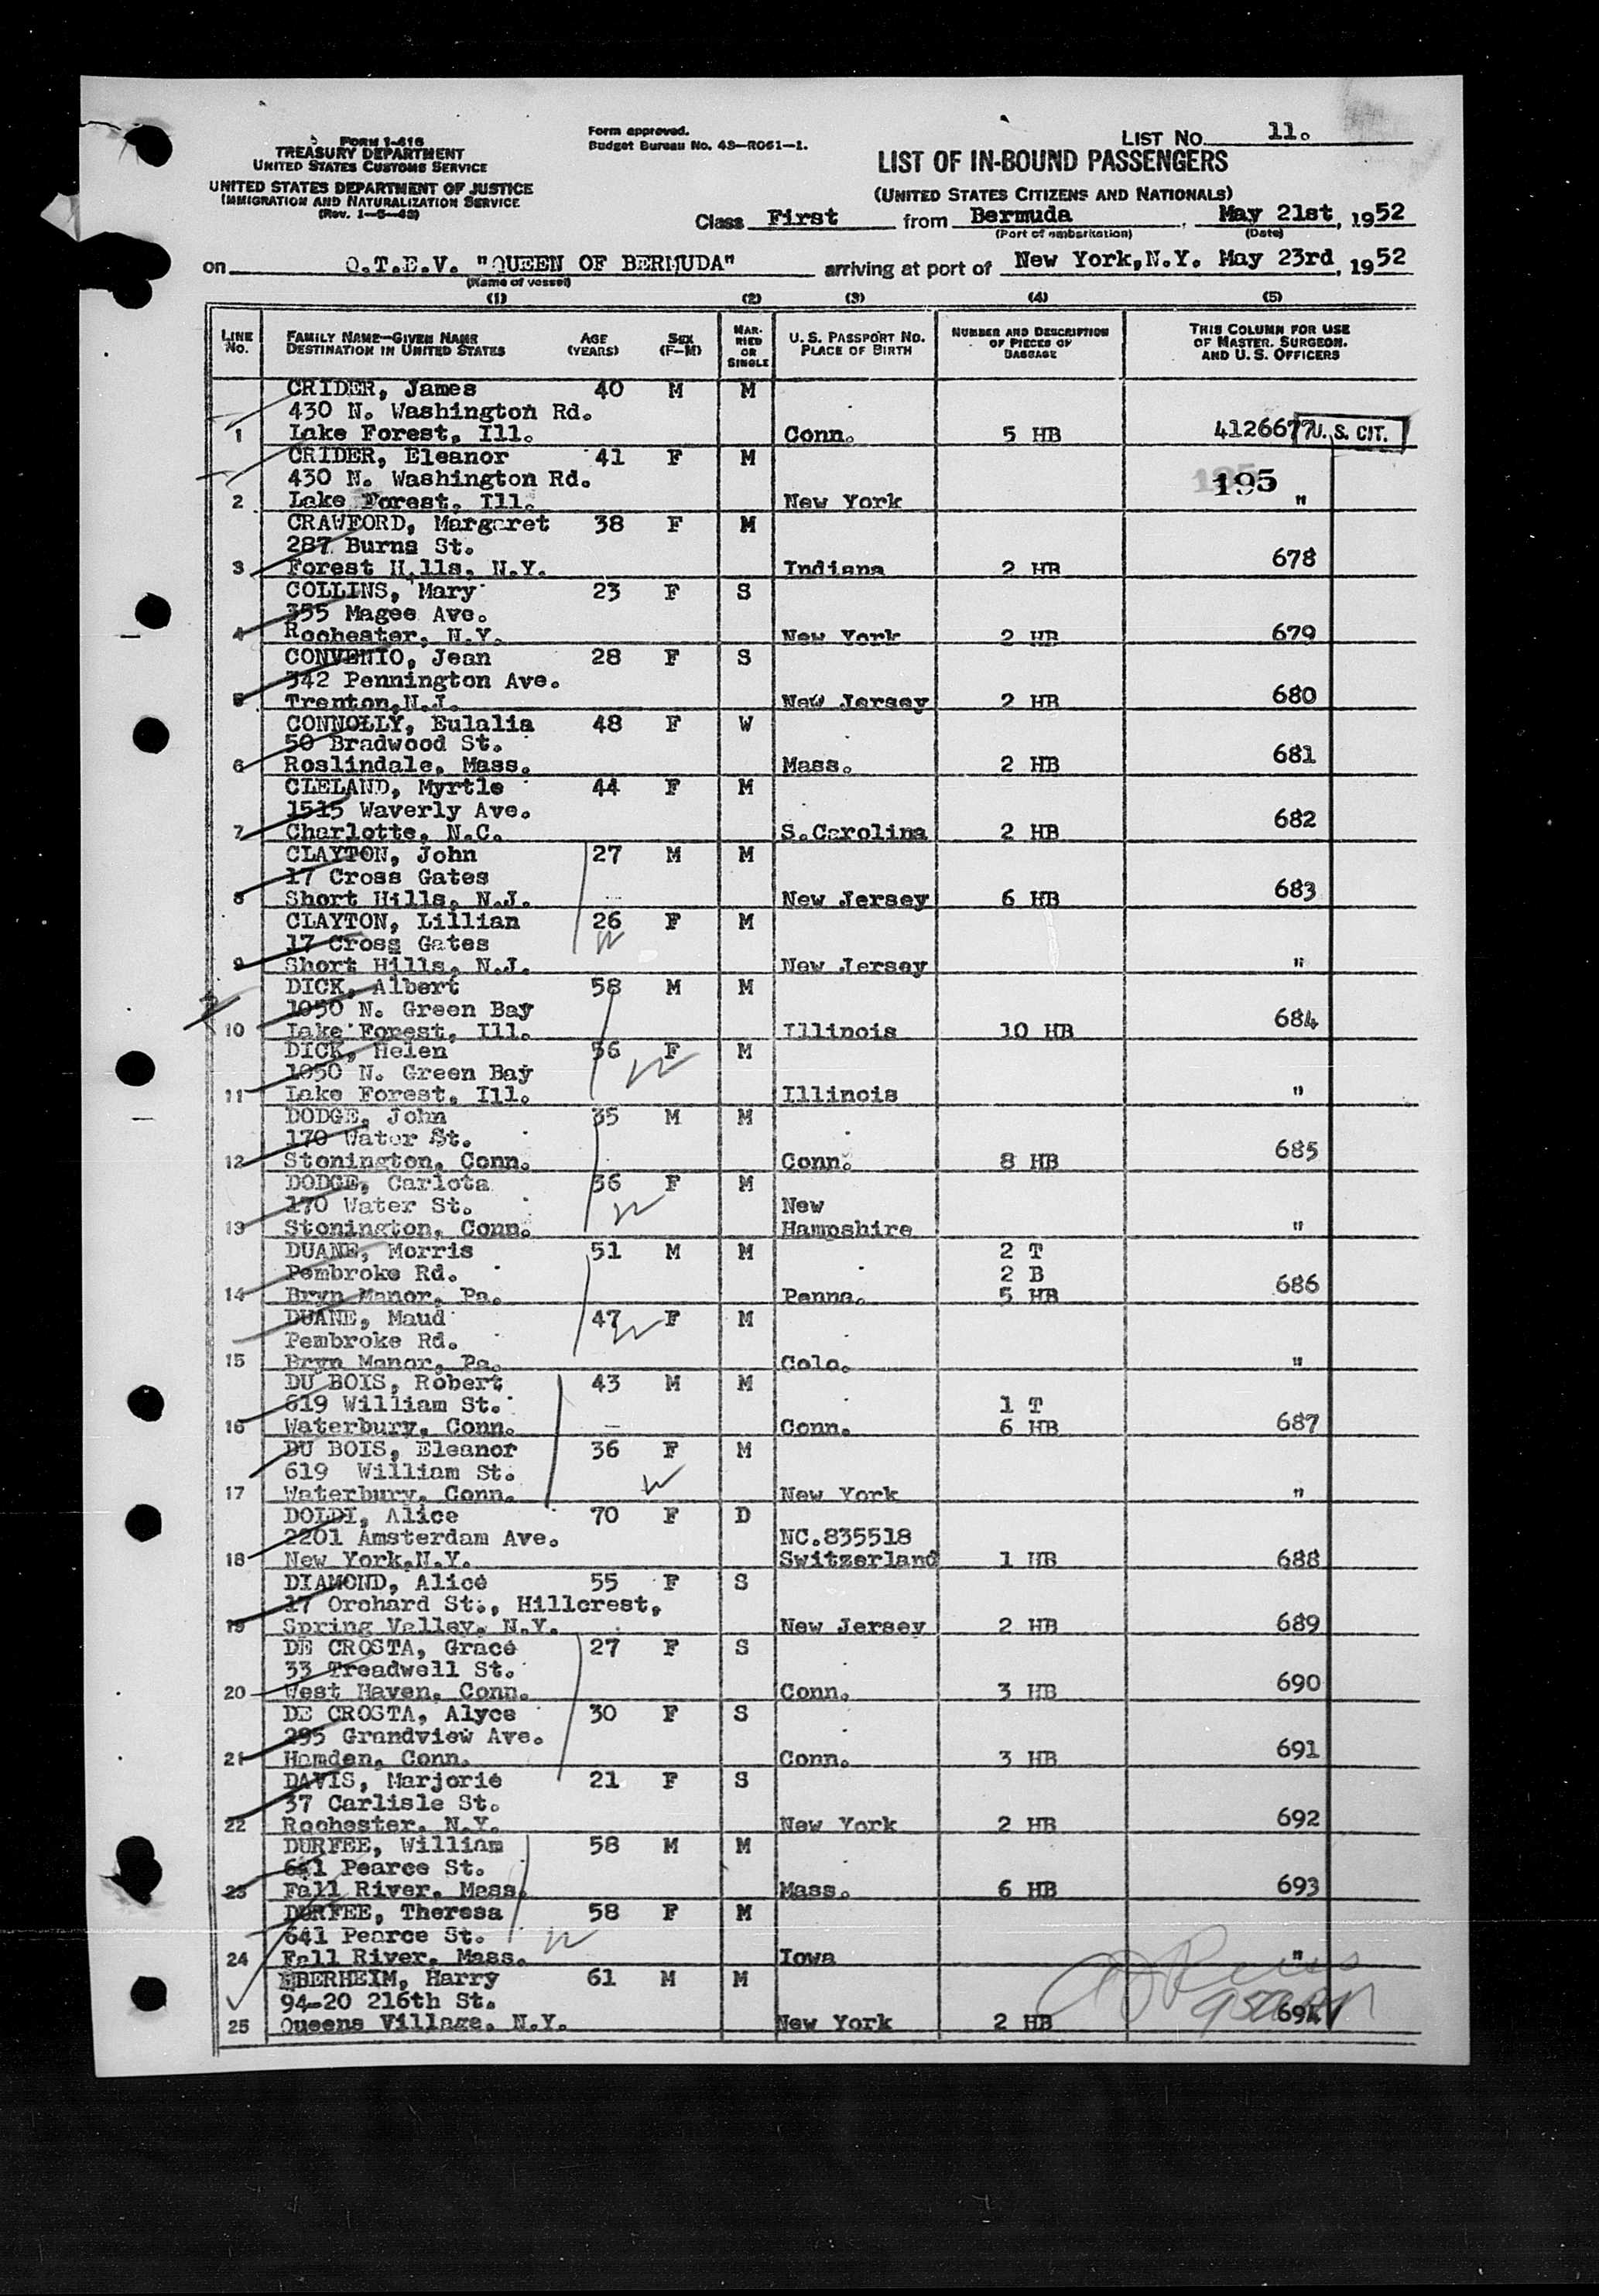 LIST NO. 11.
FORM I-416
TREASURY DEPARTMENT
UNITED STATES CUSTOMS SERVICE
UNITED STATES DEPARTMENT OF JUSTICE
IMMIGRATION AND NATURALIZATION SERVICE
(Rev. 1-5-48)
Form approved.
Budget Bureau No. 43-R061-1.
LIST OF IN-BOUND PASSENGERS
(UNITED STATES CITIZENS AND NATIONALS)
Class First from Bermuda, May 21st, 1952
(Port of embarkation) (Date)
on Q.T.E.V. "QUEEN OF BERMUDA" arriving at port of New York,N.Y. May 23rd, 1952
(Name of vessel)
(1) (2) (3) (4) (5)
LINE NO. FAMILY NAME—GIVEN NAME DESTINATION IN UNITED STATES AGE (YEARS) SEX (F-M) MARRIED OR SINGLE U. S. PASSPORT NO. PLACE OF BIRTH NUMBER AND DESCRIPTION OF PIECES OF BAGGAGE THIS COLUMN FOR USE OF MASTER, SURGEON, AND U. S. OFFICERS
CRIDER, James 40 M M
430 N. Washington Rd.
1 Lake Forest, Ill. Conn. 5 HB 4126677 U. S. CIT.
CRIDER, Eleanor 41 F M
430 N. Washington Rd. 195
2 Lake Forest, Ill. New York "
CRAWFORD, Margaret 38 F M
287 Burns St.
3 Forest Hills, N.Y. Indiana 2 HB 678
COLLINS, Mary 23 F S
355 Magee Ave.
4 Rochester, N.Y. New York 2 HB 679
CONVENIO, Jean 28 F S
342 Pennington Ave.
5 Trenton,N.J. New Jersey 2 HB 680
CONNOLLY, Eulalia 48 F W
50 Bradwood St.
6 Roslindale, Mass. Mass. 2 HB 681
CLELAND, Myrtle 44 F M
1515 Waverly Ave.
7 Charlotte, N.C. S.Carolina 2 HB 682
CLAYTON, John 27 M M
17 Cross Gates
8 Short Hills, N.J. New Jersey 6 HB 683
CLAYTON, Lillian 26 F M
17 Cross Gates
9 Short Hills, N.J. New Jersey "
DICK, Albert 58 M M
1050 N. Green Bay
10 Lake Forest, Ill. Illinois 10 HB 684
DICK, Helen 56 F M
1050 N. Green Bay
11 Lake Forest, Ill. Illinois "
DODGE, John 35 M M
170 Water St.
12 Stonington, Conn. Conn. 8 HB 685
DODGE, Carlota 36 F M
170 Water St. New
13 Stonington, Conn. Hampshire "
DUANE, Morris 51 M M 2 T
Pembroke Rd. 2 B
14 Bryn Manor, Pa. Penna. 5 HB 686
DUANE, Maud 47 F M
Pembroke Rd.
15 Bryn Manor, Pa. Colo. "
DU BOIS, Robert 43 M M
619 William St. 1 T
16 Waterbury, Conn. Conn. 6 HB 687
DU BOIS, Eleanor 36 F M
619 William St.
17 Waterbury, Conn. New York "
DOLDI, Alice 70 F D
2201 Amsterdam Ave. NC.835518
18 New York,N.Y. Switzerland 1 HB 688
DIAMOND, Alice 55 F S
17 Orchard St., Hillcrest,
19 Spring Valley, N.Y. New Jersey 2 HB 689
DE CROSTA, Grace 27 F S
33 Treadwell St.
20 West Haven, Conn. Conn. 3 HB 690
DE CROSTA, Alyce 30 F S
295 Grandview Ave.
21 Hamden, Conn. Conn. 3 HB 691
DAVIS, Marjorie 21 F S
37 Carlisle St.
22 Rochester, N.Y. New York 2 HB 692
DURFEE, William 58 M M
641 Pearce St.
23 Fall River, Mass. Mass. 6 HB 693
DURFEE, Theresa 58 F M
641 Pearce St.
24 Fall River, Mass. Iowa "
EBERHEIM, Harry 61 M M
94-20 216th St.
25 Queens Village, N.Y. New York 2 HB 694